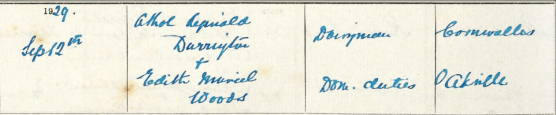 1929.
Sep 12th
Athol Reginald
Darrington
+
Edith Muriel
Woods
Dairyman
Dom. duties
Cornwallis
Oakville